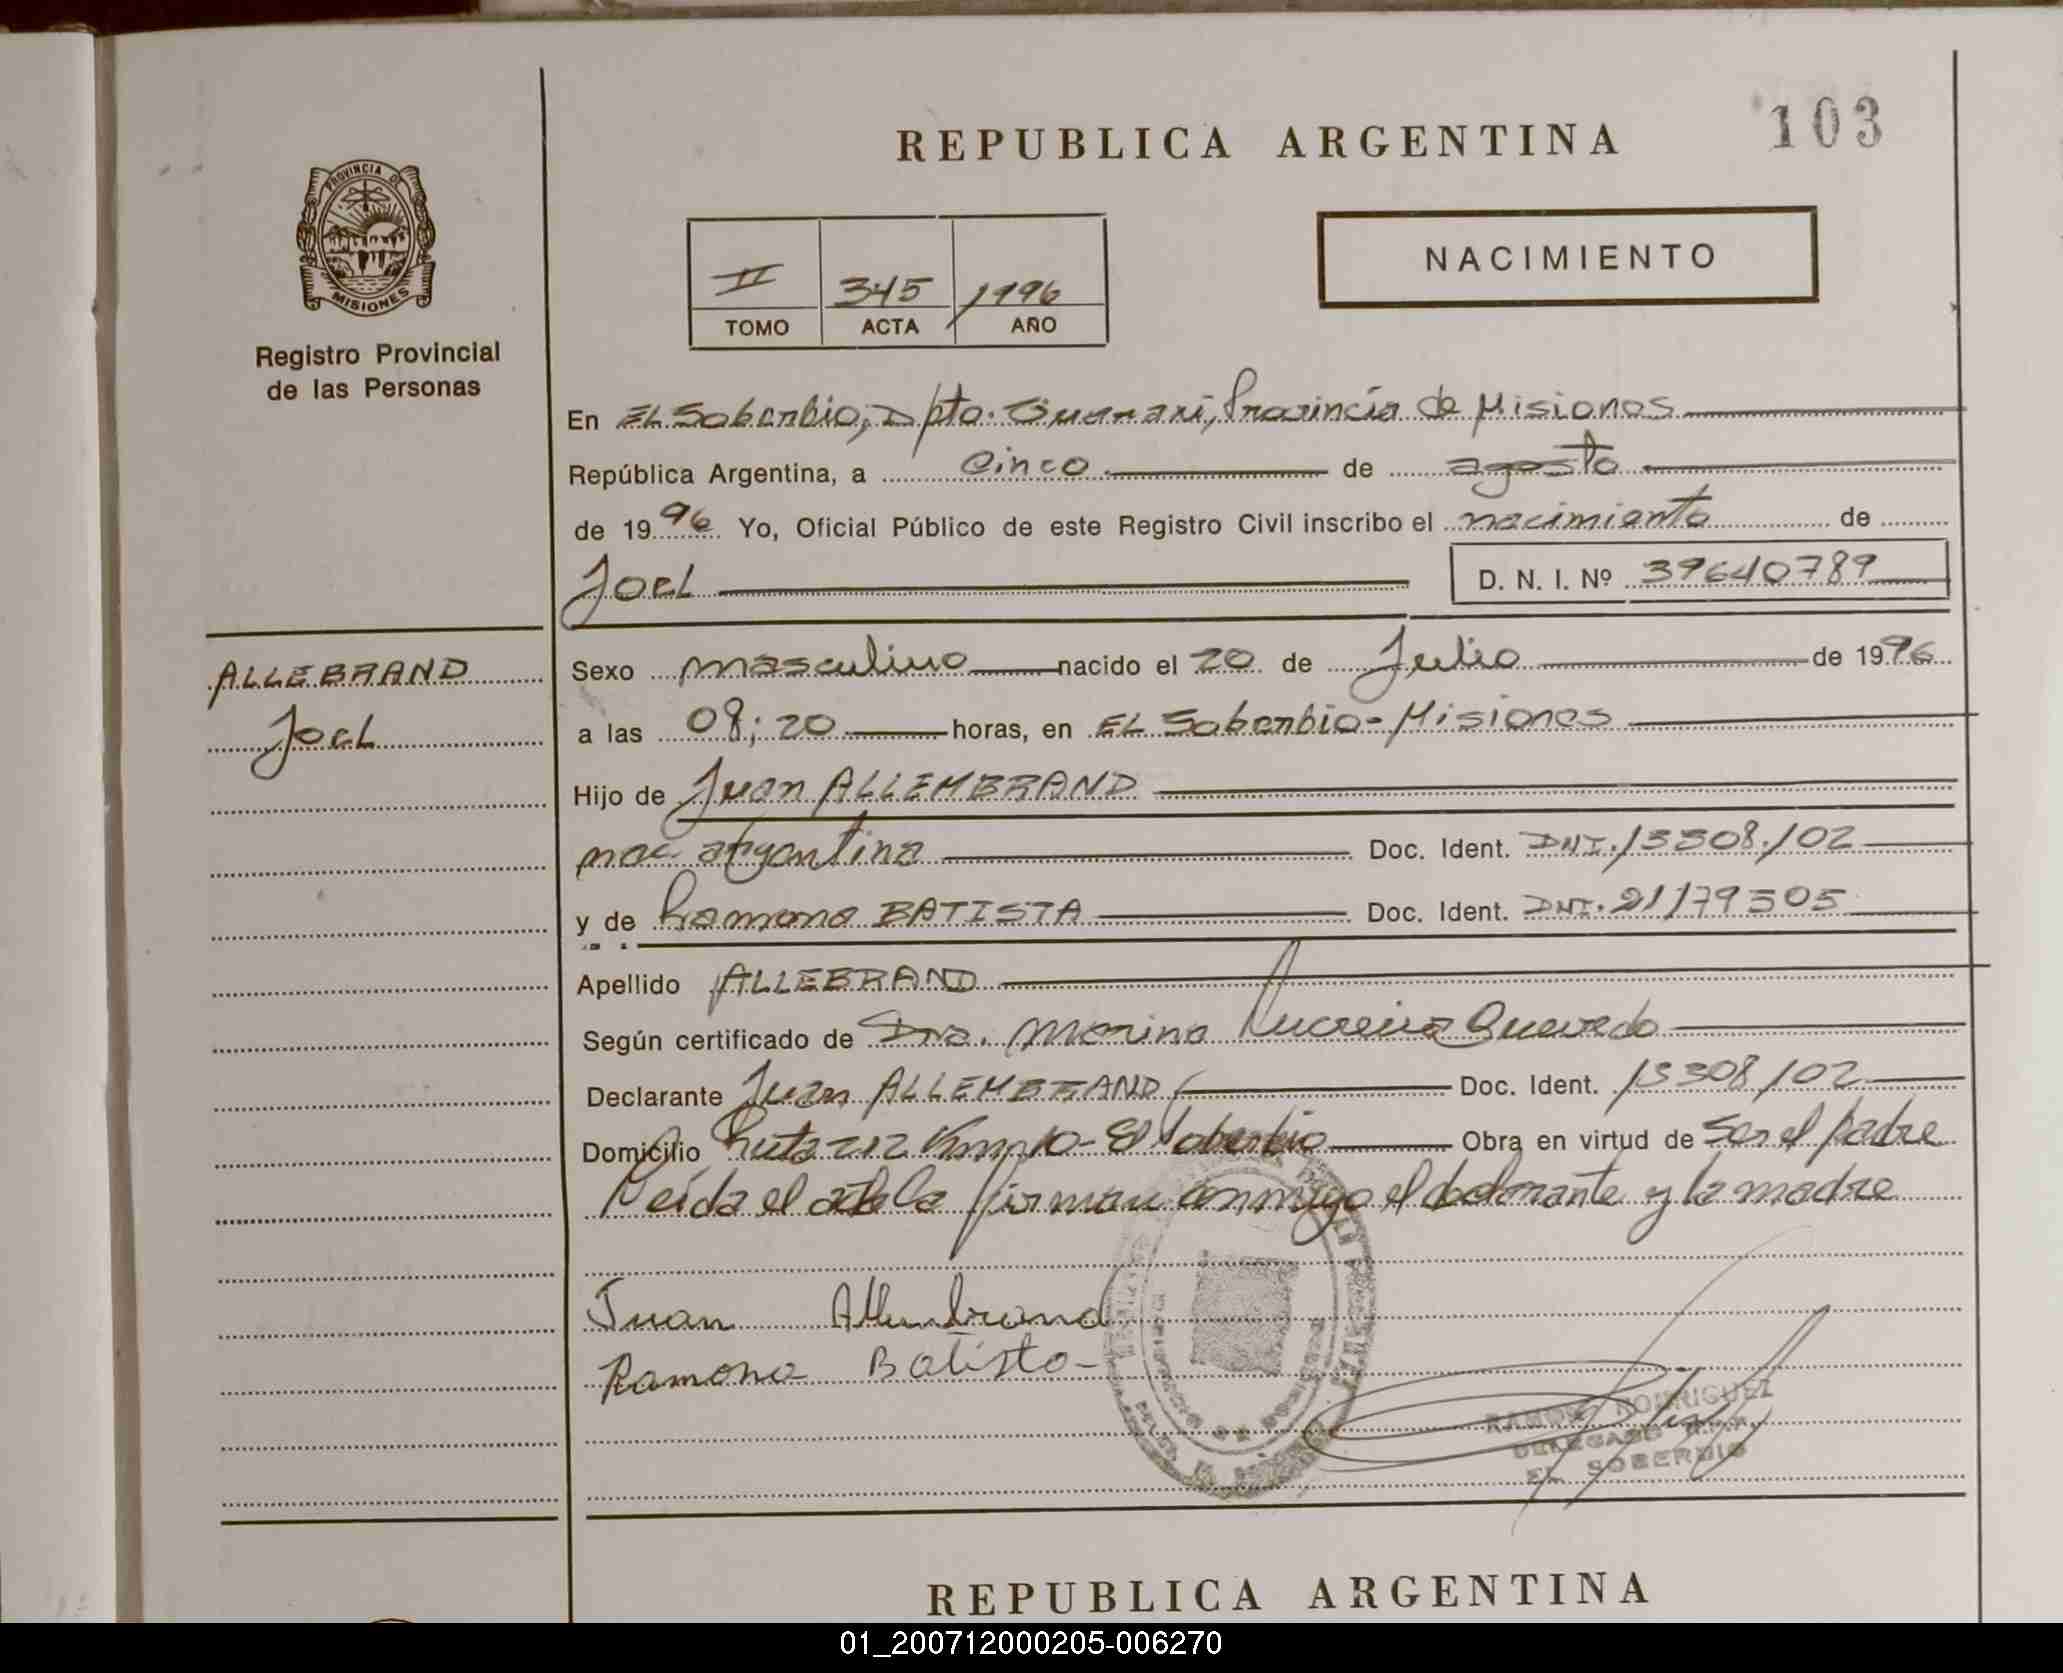 103
REPUBLICA ARGENTINA
NACIMIENTO
II 345 1996
TOMO ACTA AÑO
PROVINCIA DE
MISIONES
Registro Provincial
de las Personas
En EL Soberbio, Dpto. Guarani, Provincia de Misiones
República Argentina, a cinco de agosto
de 1996 Yo, Oficial Público de este Registro Civil inscribo el nacimiento de
Joel D. N. I. Nº 39640789
ALLEBRAND
Joel
Sexo masculino nacido el 20 de Julio de 1996
a las 08;20 horas, en EL Soberbio-Misiones
Hijo de Juan ALLEMBRAND
nac argentina Doc. Ident. DNI. 13308.102
y de Ramona BATISTA Doc. Ident. DNI. 21179505
Apellido ALLEBRAND
Según certificado de Dra. Marina Lucrecia Quevedo
Declarante Juan ALLEMBRAND Doc. Ident. 13308102
Domicilio Ruta 212 El Soberbio Obra en virtud de ser el padre
Leída el acta la firman conmigo el declarante y la madre
Juan Allembrand
Ramona Batista-
RAMON RODRIGUEZ
DELEGADO
EL SOBERBIO
REPUBLICA ARGENTINA
01_200712000205-006270